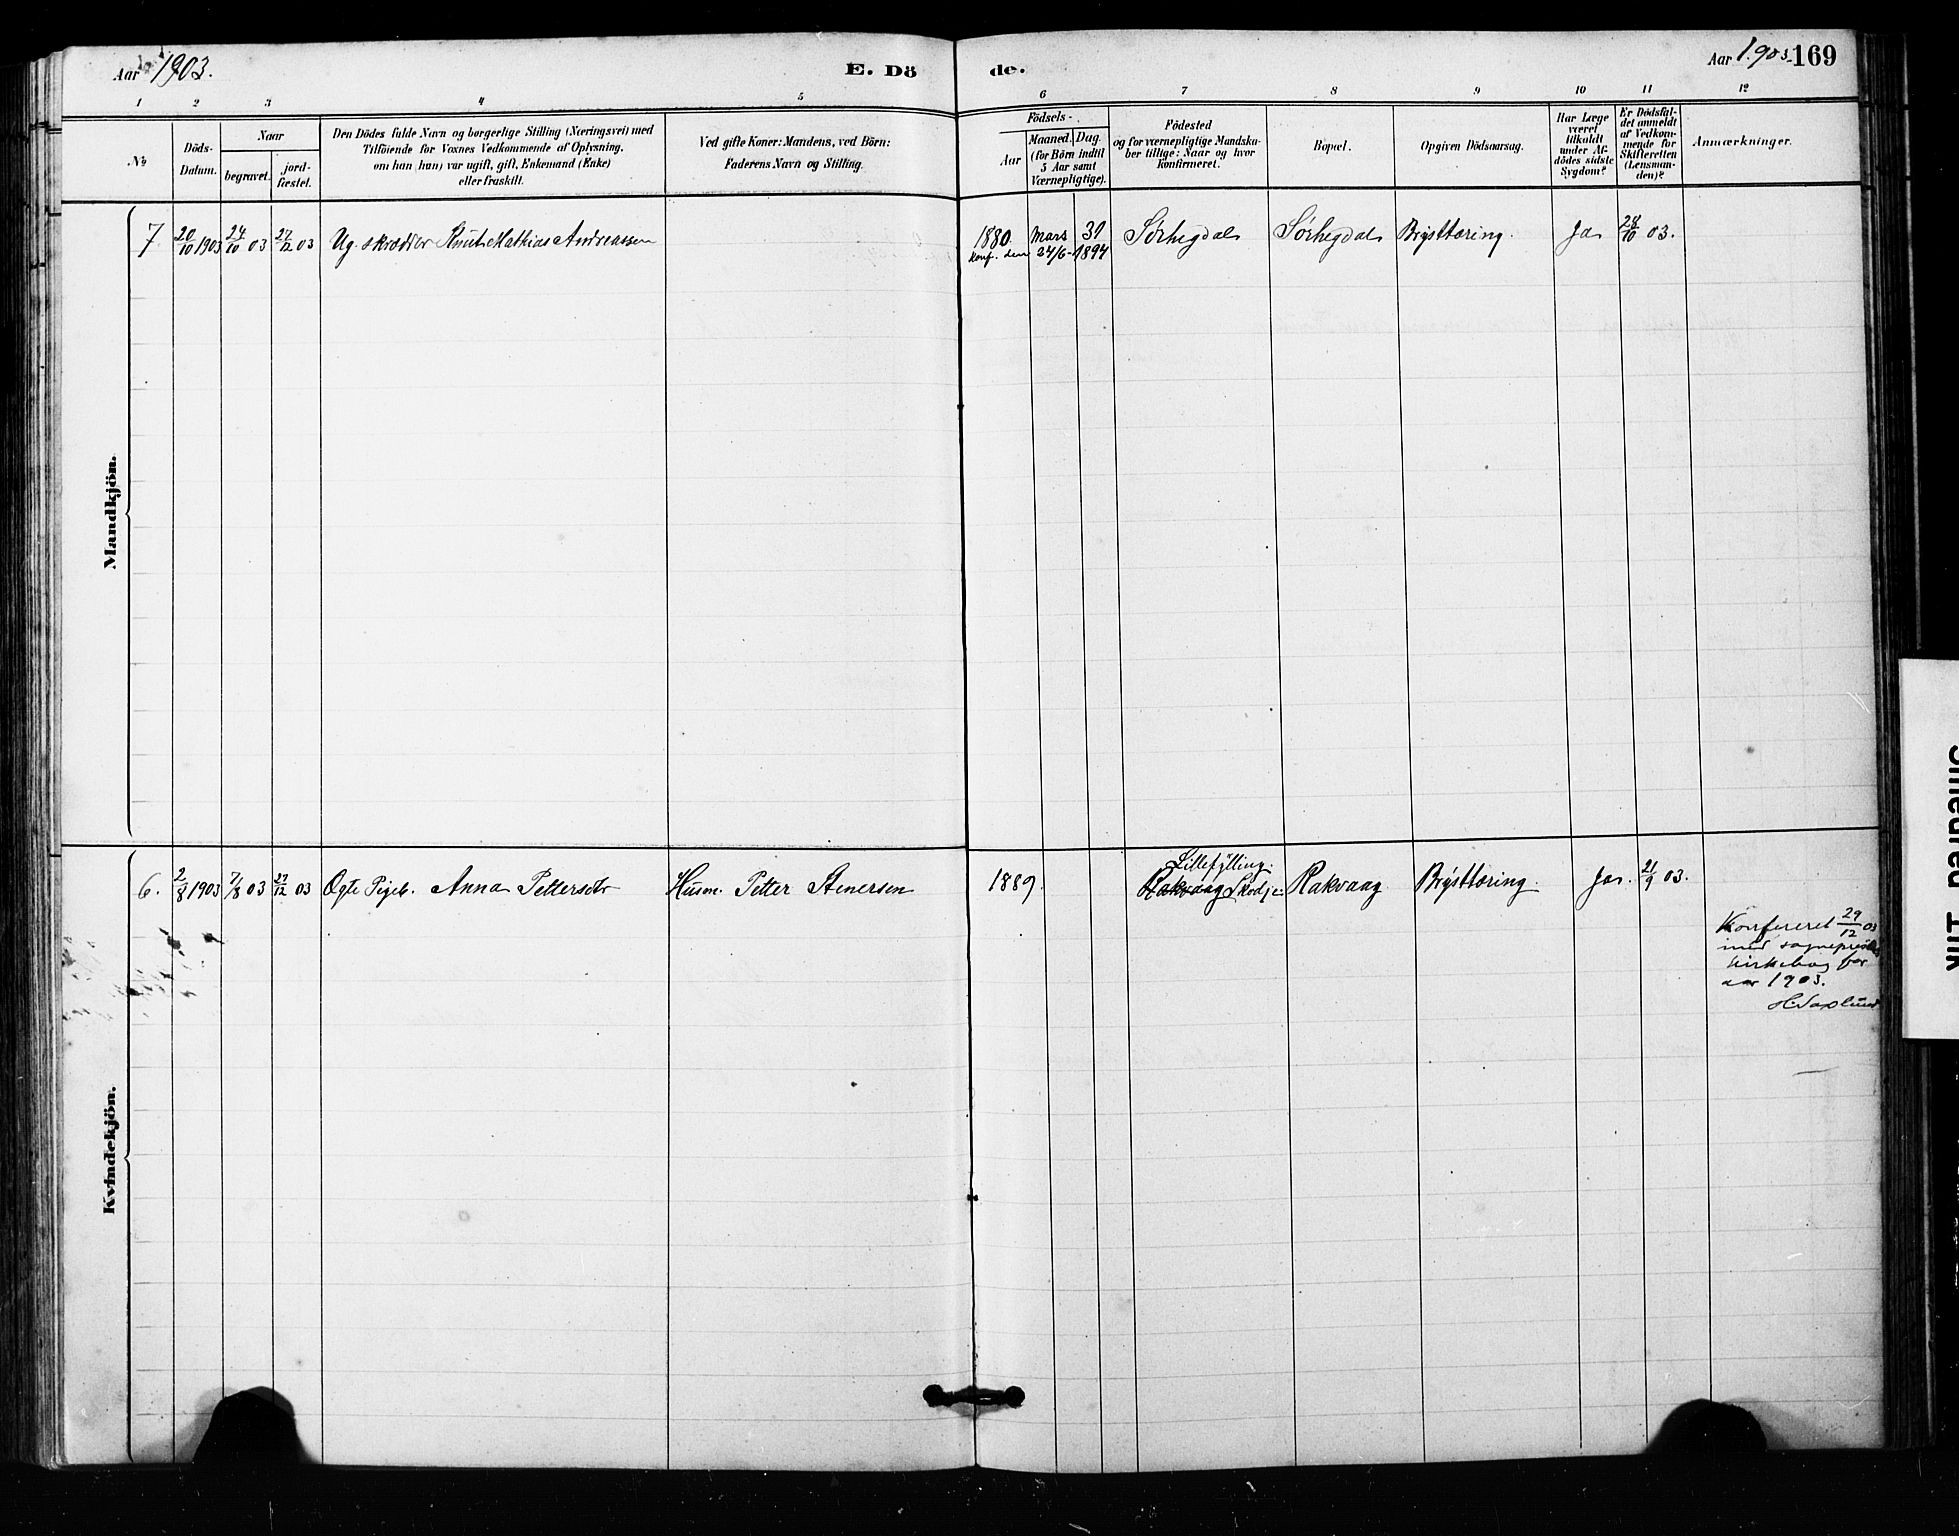 Aar 1903.
E. Dö
de.
Aar 1903.
169
1 2 3 4 5 6 7 8 9 10 11 12
No
Döds-
Datum.
Naar
begravet.
jord-
fæstet.
Den Dödes fulde Navn og borgerlige Stilling (Næringsvei) med
Tilföiende for Voxnes Vedkommende af Oplysning,
om han (hun) var ugift, gift, Enkemand (Enke)
eller fraskilt.
Ved gifte Koner: Mandens, ved Börn:
Faderens Navn og Stilling.
Födsels-
Aar
Maaned. Dag.
(for Börn indtil
5 Aar samt
Værnepligtige).
Födested
og for værnepligtige Mandska-
ber tillige: Naar og hvor
konfirmeret.
Bopæl.
Opgiven Dödsaarsag.
Har Læge
været
tilkaldt
under Af-
dödes sidste
Sygdom?
Er Dödsfal-
det anmeldt
af Vedkom-
mende for
Skifteretten
(Lensman-
den)?
Anmærkninger.
Mandkjön.
7. 20/10 1903 24/10 03 27/12 03 Ug. skrædder Knut Mathias Andreassen 1880. Mars 31 Sørhegdal Sørhegdal Brysttæring. Ja 28/10 03.
Konf. den 24/6-1894
Kvindekjön.
Lillefylling.
6. 2/8 1903 7/8 03 27/12 03 Ægte Pigeb. Anna Pettersdtr Husm. Petter Stenersen 1889. Rakvaag Skodje Rakvaag Brysttæring. Ja. 21/9 03.
Konfereret 29/12 03
med sogneprestens
kirkebog for
aar 1903.
H. Saxlund